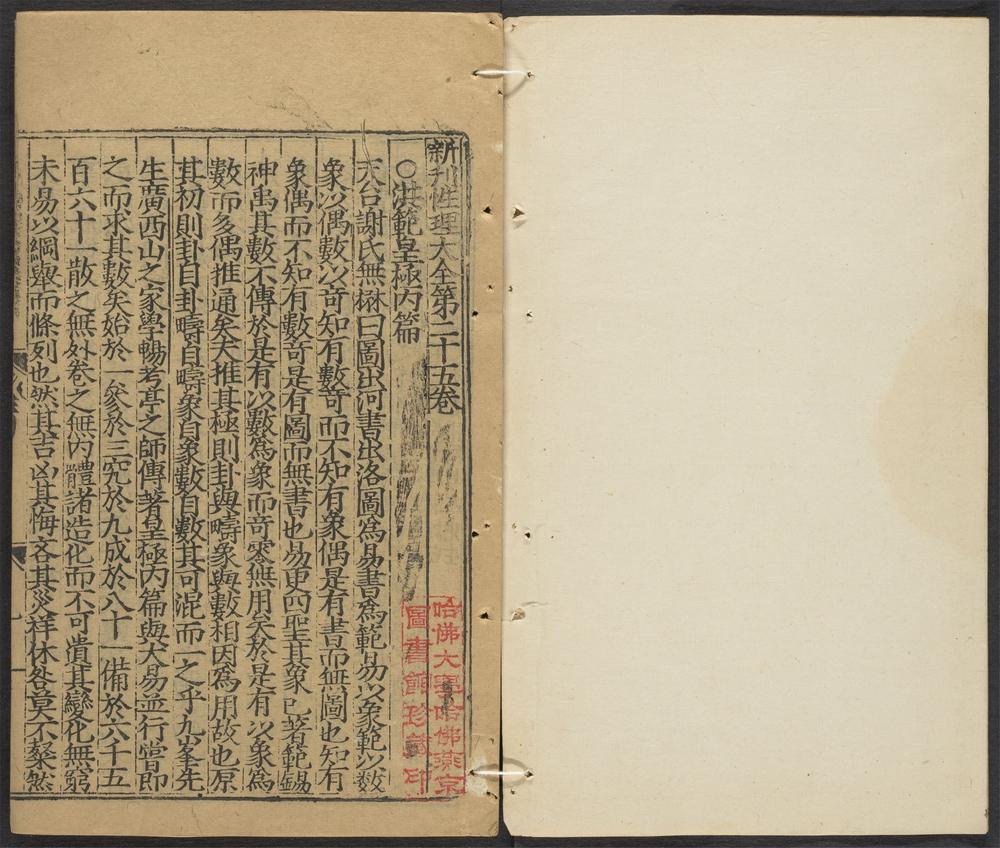 新刊性理大全第二十五卷
○洪範皇極內篇
天台謝氏無楙曰圖出河書出洛圖為易書為範易以象範以數
象以偶數以奇知有數奇而不知有象偶是有書而無圖也知有
象偶而不知有數奇是有圖而無書也易更四聖其象已著範錫
神禹其數不傳於是有以數為象而奇零無用矣於是有以象為
數而多偶推通矣夫推其極則卦與疇象與數相因為用故也原
其初則卦自卦疇自疇象自象數自數其可混而一之乎九峯先
生廣西山之家學暢考亭之師傳著皇極內篇與大易並行嘗即
之而求其數矣始於一參於三究於九成於八十一備於六千五
百六十一散之無外卷之無內體諸造化而不可遺其變化無窮
未易以綱舉而條列也然其吉凶其悔吝其災祥休咎莫不粲然
哈佛大學哈佛燕京
圖書館珍藏印